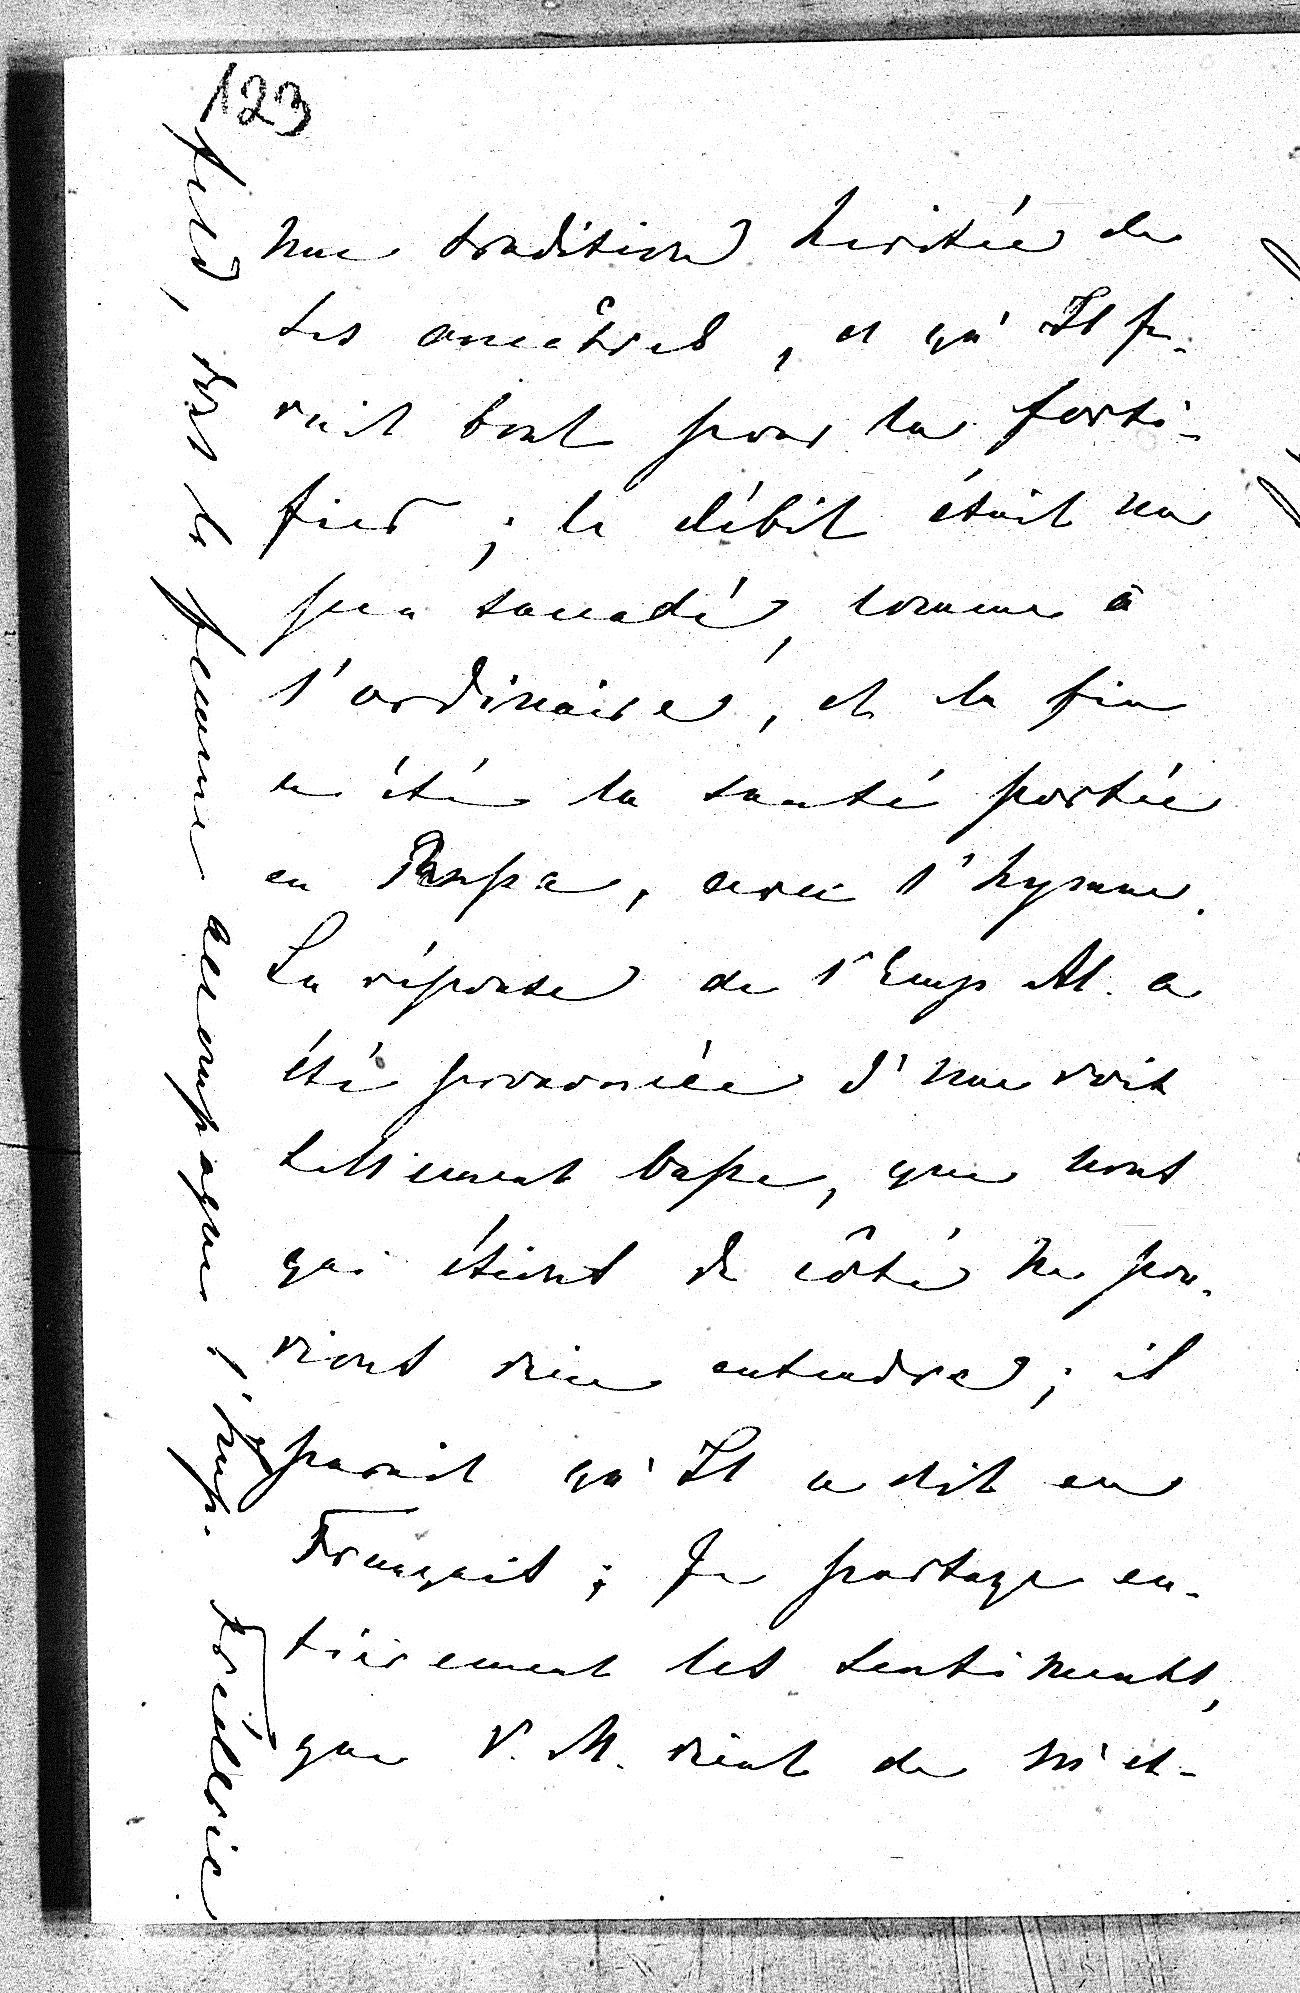 123
une tradition heritée de
ses ancêtres, et qu'Il fe-
rait tout pour la forti-
fier; le débit était un
peu saccadé, comme à
l'ordinaire, et la fin
a été la santé portée
en Russe, avec l'hymne.
La réponse de l'Emp Al. a
été prononcée d'une voix
tellement basse, que nous
qui étions de côté ne pou-
vions rien entendre; il
parait qu'Il a dit en
Français; Je partage en-
tièrement les sentiments,
que V. M. vient de m'ex-
feld, dont la femme accompagne l'Emp. Fréderic